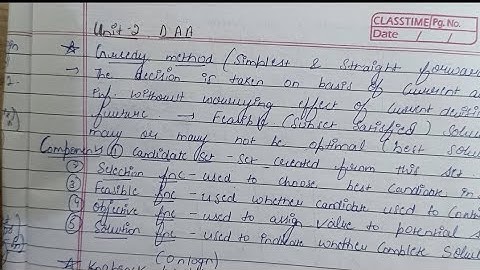 CLASSTIME Pg. No.
Date / /
Unit-2 DAA
Greedy method (Simplest & Straight forward
→ The decision is taken on basis of Current a
inf. without worrying effect of Current decisi
future. → Feasible (Subset Satisfied) Solu
may or may not be optimal (best solu
Components ① Candidate Set - Set created from this set.
② Selection fnc - used to choose best Candidate in
③ Feasible fnc - used whether candidate used to Cont
④ Objective fnc - used to assign value to potential S
⑤ Solution fnc - used to indicate whether Complete Solut
(Onlogn)
Knapsack